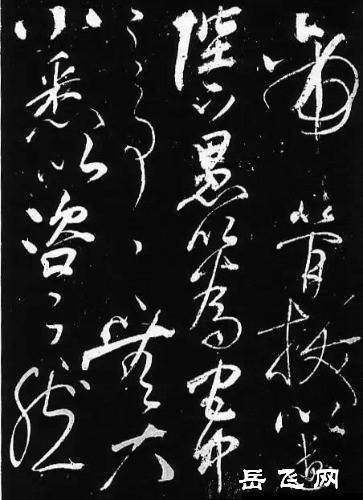 帝簡拔以遺
陛下愚以為宮中
之事〻無大
小悉以咨之然
岳飞网